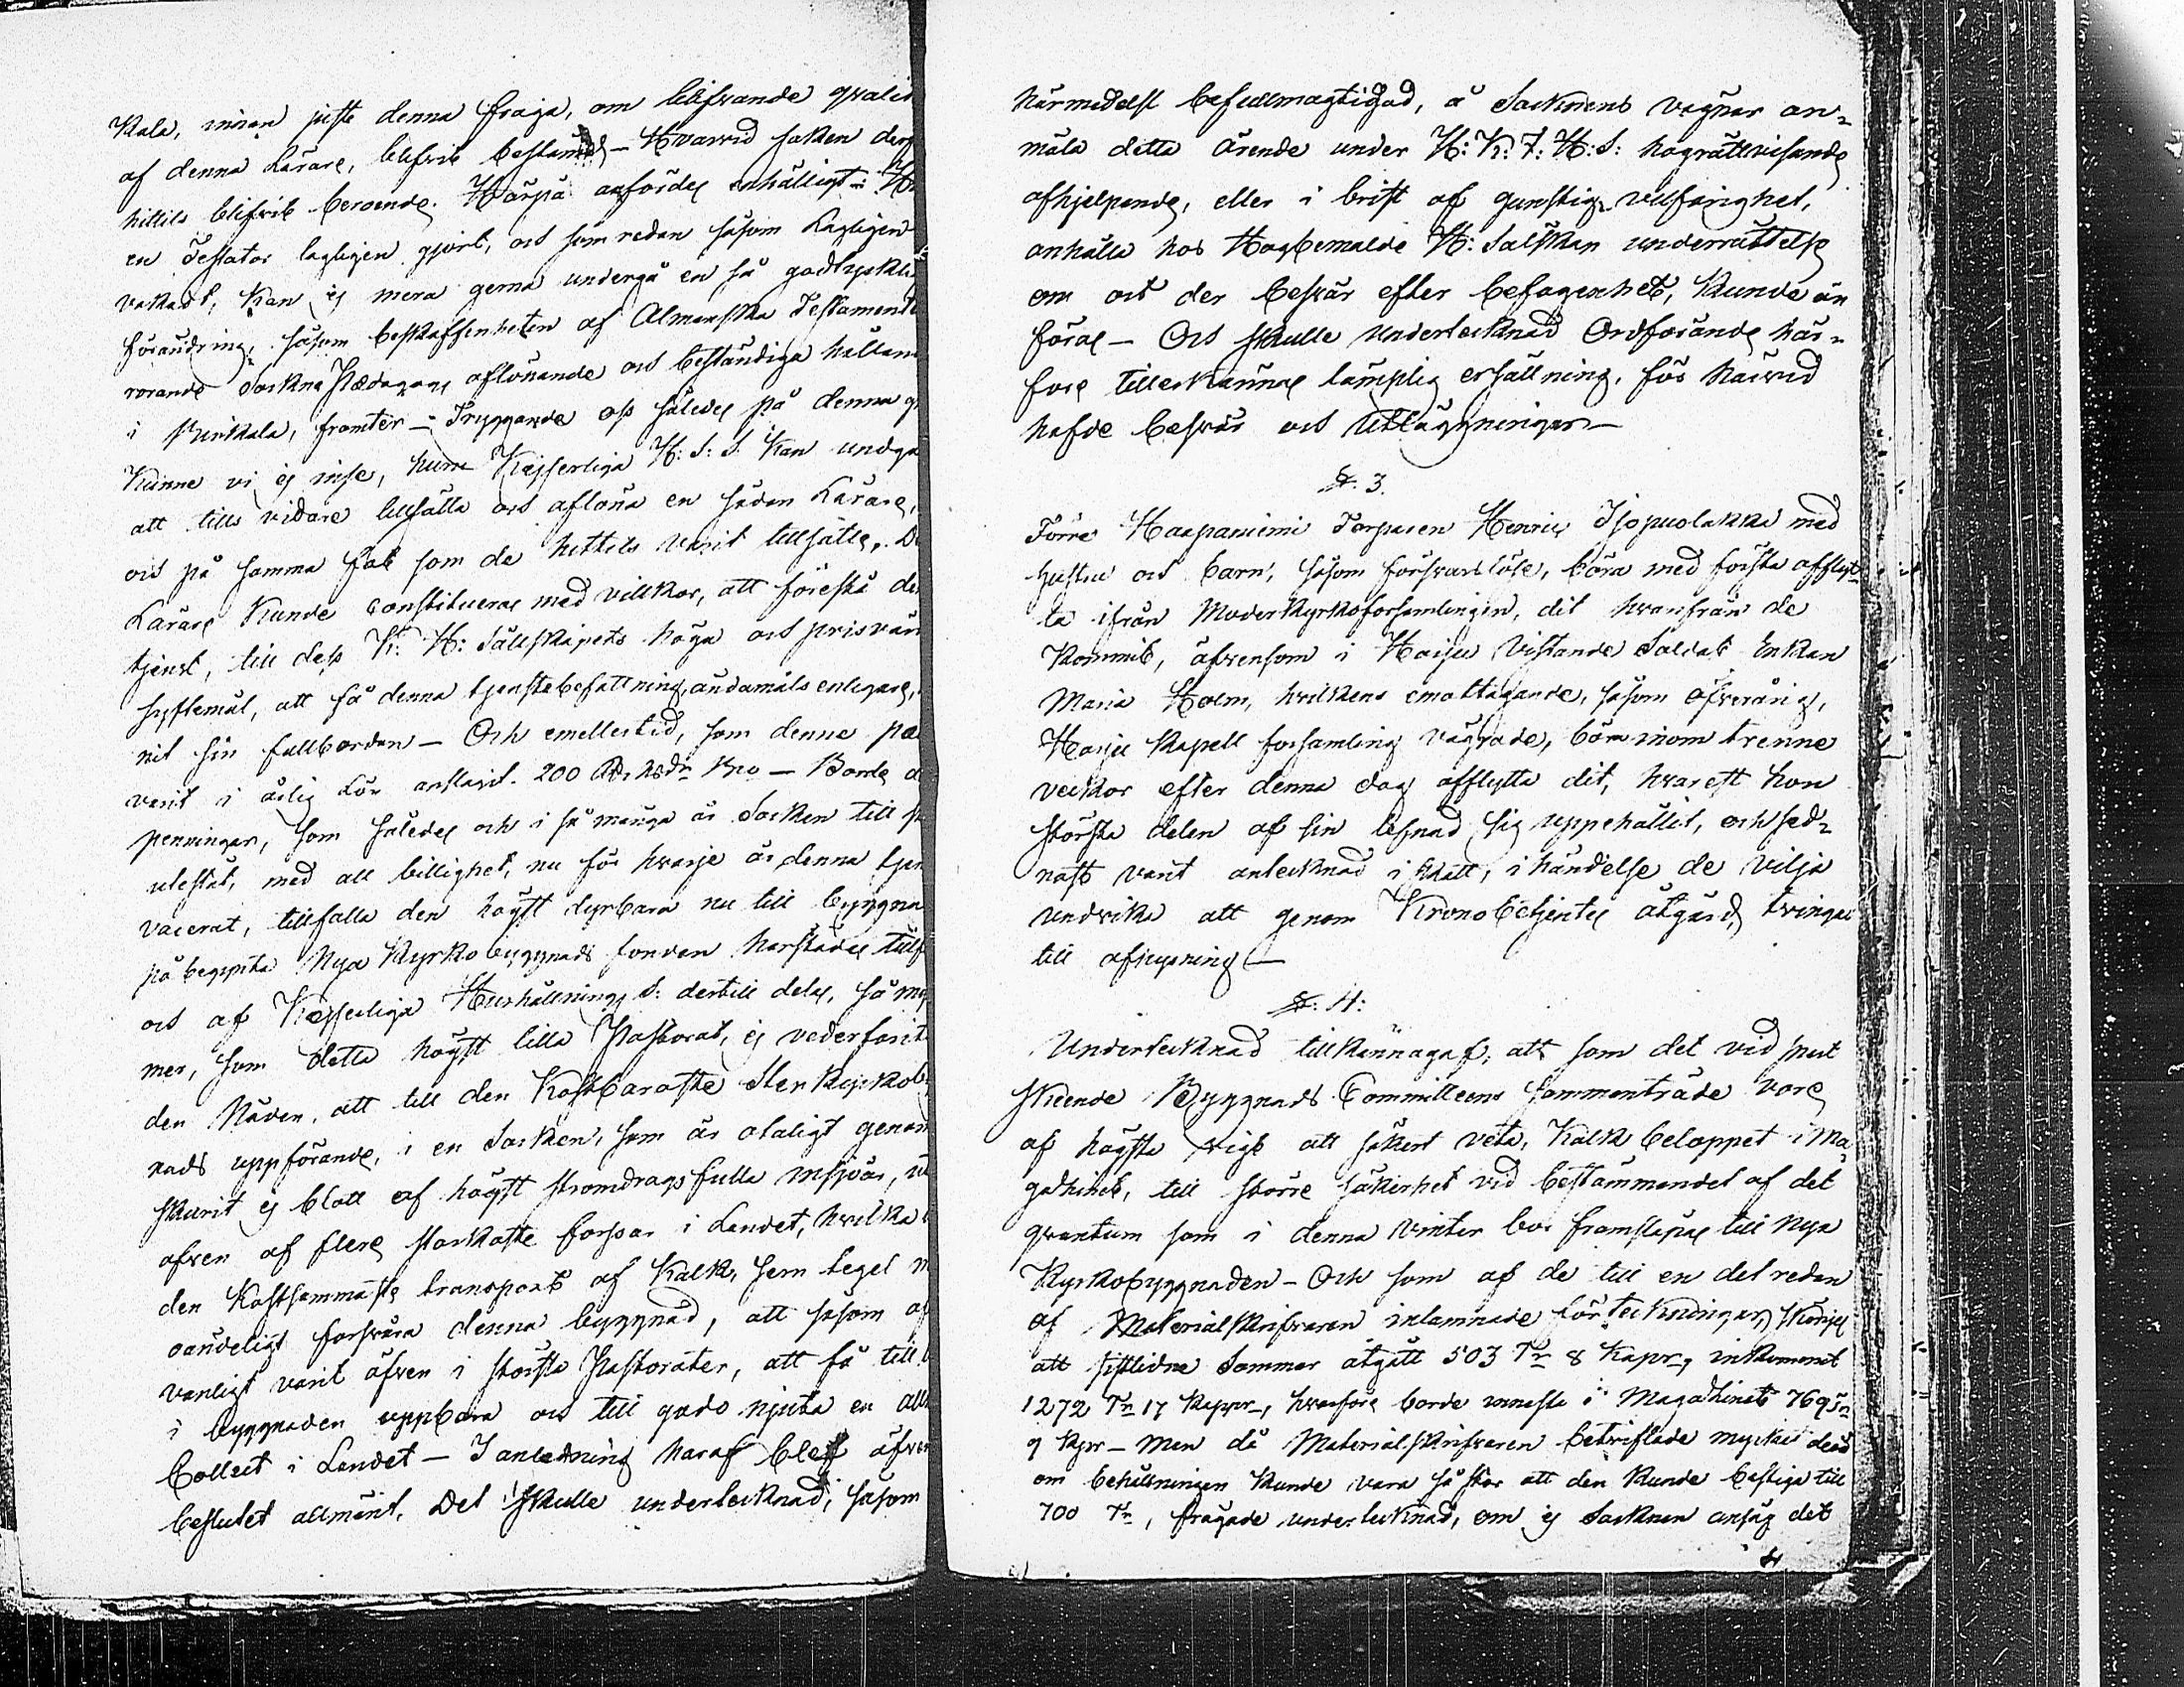 kala, innan sista denna fråga, om blifvande qvali
af denna Lärare, blifvit bestämd, – Hvarvid saken der
hittils blifvit beroende. Härpå anfördes enhälligt: H
en Testator lagligen gjort, och som redan såsom Lagligen
vakat, kan ej mera gerna undergå en så godtycklig
förändring, såsom beskaffenheten af Almanska Testamente
rörande Sockne Pædagogs aflönande och beständiga hållan
i Pungala, framter – Tryggande oss således på denna g
kunne vi ej inse, huru Kejserliga H: S: S: kan undgå
att tills vidare tillsätta och aflöna en sådan Lärare,
och på samma fot som de hittils varit tillsatte. De
Lärare kunde constitueras med villkor, att förestå de
tjenst, till dess K: H: Sällskapets höga och prisvär
syftemål, att få denna tjenstebefattning ändamåls enligare,
nit sin fullbordan – Och emellertid, som denne pæ
varit i årlig Lön anslagit 200 Rdr Rgds Bco – Borde d
penningar, som således och i så många år Socken till
utestat, med all billighet, nu för hvarje år denna tjen
vacerat, tillfalla den högst dyrbara nu till byggna
påbegynta Nya Kyrkobyggnads fonden härstädes tillf
och af Kejserliga Hushållnings S: dertill delas, så my
mer, som detta högst lilla Pastorat, ej vederfarits
den Nåden, att till den kostbaraste Stenkyrkob
nads uppförande, i en Socken, som är otaligt genom
skurit ej blott af högst stromdragsfulla insjöar, u
äfven af flere starkaste forssar i Landet, hvilka
den kostsammaste transport af Kalk, sten tegel m
oändeligt försvåra denna byggnad, att såsom of
vanligt varit äfven i största Pastorater, att få till
i byggnaden uppbära och till godo njuta en all
Collect i Landet – I anledning häraf blef äfven
beslutet allmänt. Det skulle undertecknad, såsom
härmedelst befullmägtigad, å Socknens vägnar an-
mäla detta ärende under H: K: F: H: S: högrättvisande
afhjelpande, eller i brist af gunstig vilfarighet,
anhålla hos Högbemälde H: Sälskap underrättelse
om och der besvär efter befogenhet, kunde an
föras – Och skulle undertecknad Ordförande här-
före tillerkännas lämplig ersättning, för härvid
hafde besvär och utläggningar –
§. 3.
Förre Haapaniemi Torparen Henric Isopuolakka med
hustru och barn, såsom försvarslöse, böra med första afflyt-
ta ifrån Moderkyrkoförsamlingen, dit hvarifrån de
kommit, äfvensom i Harju vistande Soldats Enkan
Maria Holm, hvilkens emottagande, såsom öfverårig,
Harju kapell församling vägrade, bör inom trenne
veckor efter denna dag afflytta dit, hvarest hon
största delen af sin lefnad sig uppehållit, och sed-
nast varit antecknad i skatt, i händelse de vilja
undvika att genom Kronobetjentes åtgärd, tvingas
till afhysning –
§. 4:
Undertecknad tillkännagaf, att som det vid snart
skeende Byggnads Committeens sammanträde vore
af högsta vigt att säkert veta, Kalk beloppet i Ma-
gazinet, till större säkerhet vid bestämmandet af det
qvantum som i denna vinter bör framsläpas till nya
Kyrkobyggnaden – Och som af de till en del redan
af Materialskrifvaren inlämnade förteckningar, skönjes
att sistlidne Sommar åtgått 503 Tr 8 Kapr, inkommit
1272 Tr 17 Kappr, hvarföre borde innesta i Magazinet 769 Tr
9 Kpr – Men då Materialskrifvaren betviflade mycket derå
om behållningen kunde vara så stor att den kunde bestiga till
700 Tr, frågade undertecknad, om ej Socknen ansåg det